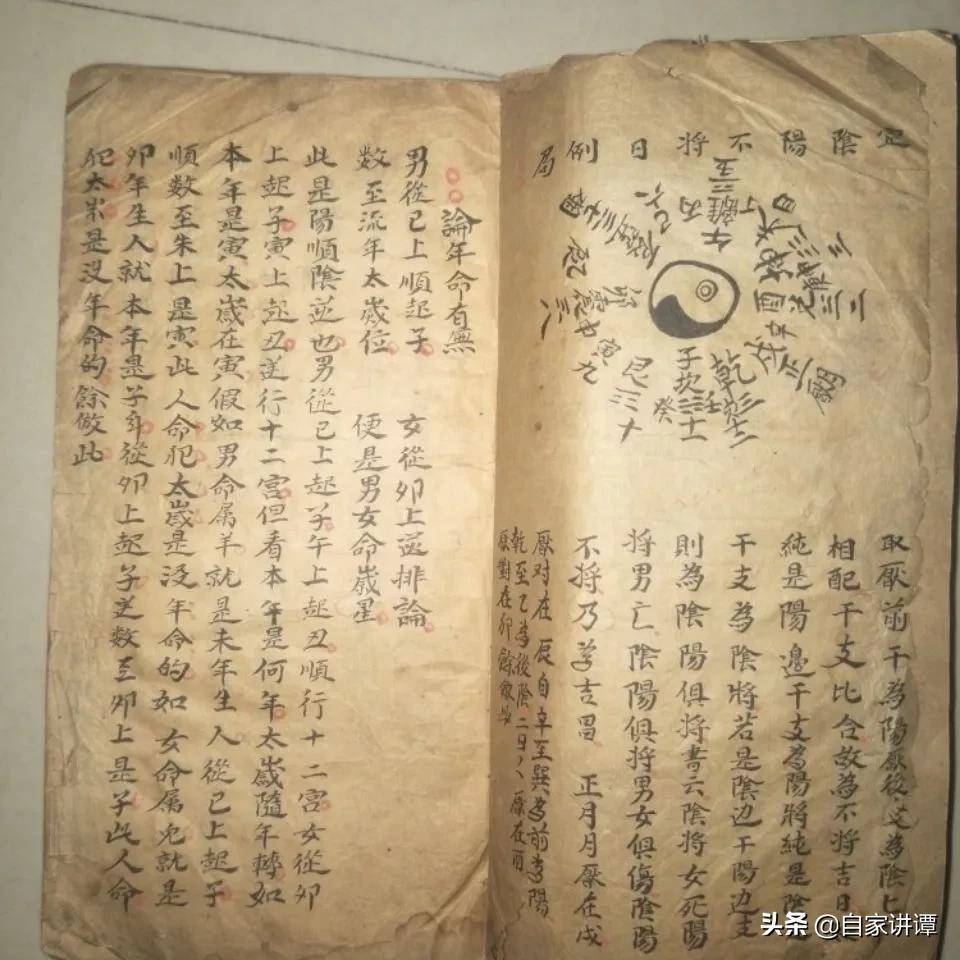 定陰陽不將日例局
取厭前干為陽厭後支為陰上
相配干支比合故為不將吉日
純是陽邊干支為陽將純是陰
干支為陰將若是陰边干陽边支
則為陰陽俱將書云陰將女死陽
將男亡陰陽俱將男女俱傷陰陽
不將乃為吉昌 正月月厭在戌
厭对在辰自辛至巽為前為陽
乾至乙為後陰二日八厭在酉
厭對在卯餘倣此
午離丙丁
乾
子坎
癸
艮三十
寅九
論年命有無
男從巳上順起子 女從卯上逆排論
數至流年太歲位 便是男女命歲星
此是陽順陰逆也男從巳上起子午上起丑順行十二宮女從卯
上起子寅上起丑逆行十二宮但看本年是何年太歲隨年轉如
本年是寅太歲在寅假如男命属羊就是未年生人從巳上起子
順数至未上是寅此人命犯太歲是没年命的如女命属兔就是
卯年生人就本年是子年從卯上起子逆数至卯上是子此人命
犯太歲是没年命的餘倣此
头条 @自家讲谭